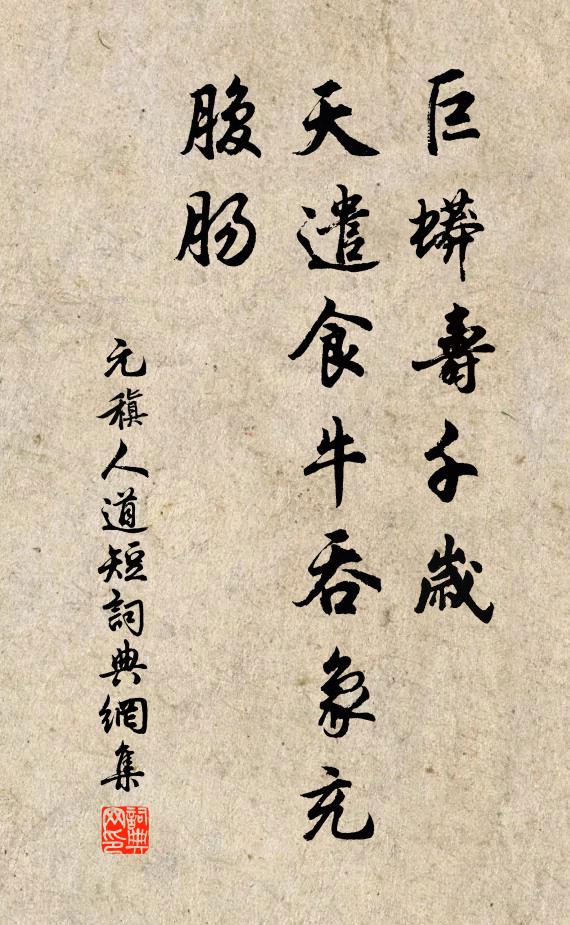 巨蟒壽千歲
天遣食牛吞象充
腹肠
元稹人道短詞典網集
詞典
网印